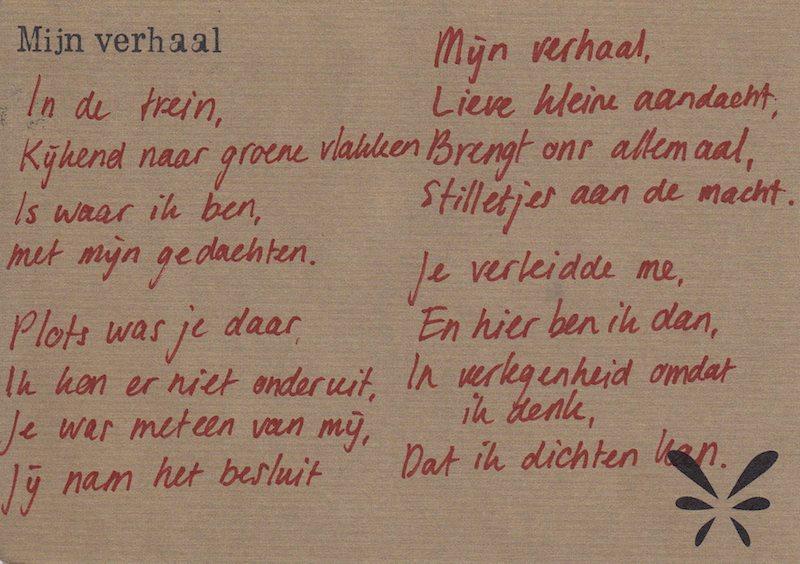 Mijn verhaal
In de trein,
Kijkend naar groene vlakken
Is waar ik ben,
met mijn gedachten.
Plots was je daar,
Ik kon er niet onderuit,
Je was meteen van mij,
Jij nam het besluit
Mijn verhaal,
Lieve kleine aandacht,
Brengt ons allemaal,
Stilletjes aan de macht.
Je verleidde me,
En hier ben ik dan,
In verlegenheid omdat
ik denk,
Dat ik dichten kan.